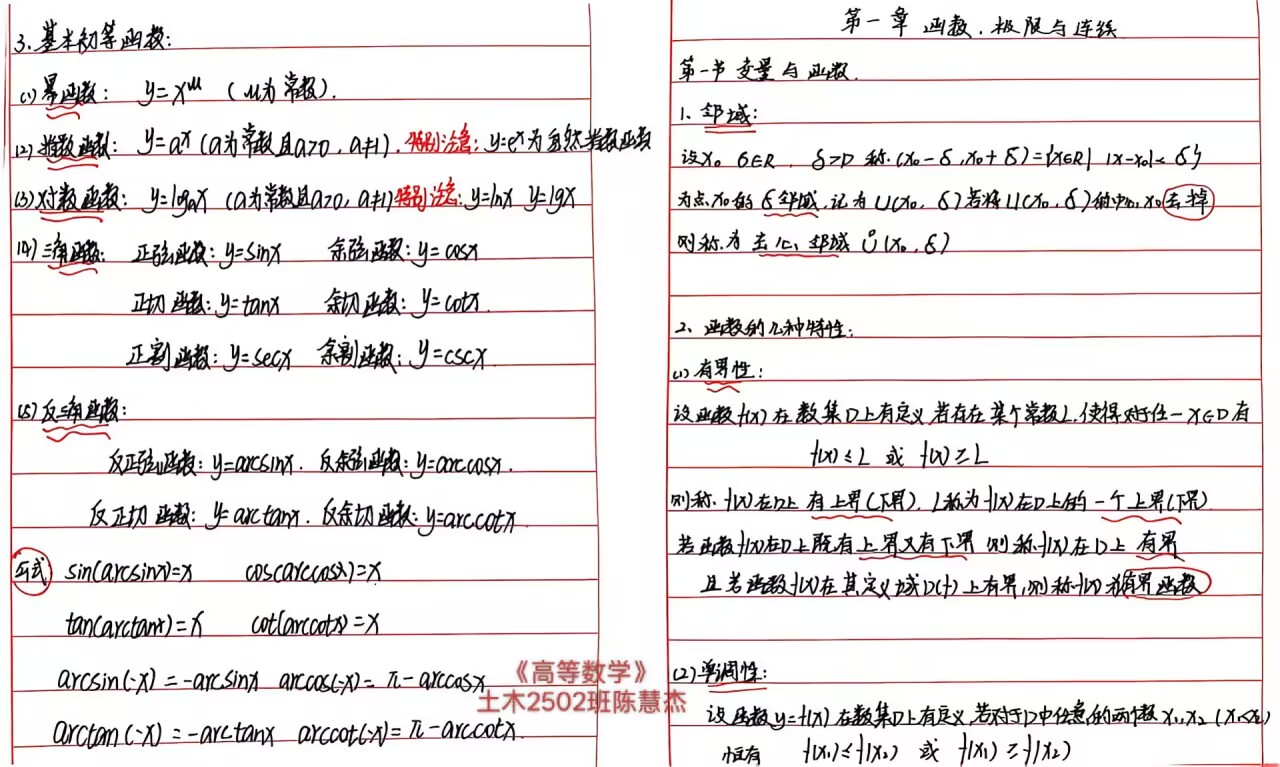 3.基本初等函数:
(1)幂函数: y=x^μ (μ为常数).
(2)指数函数: y=a^x (a为常数且a>0, a≠1). 特别注意: y=e^x为自然指数函数
(3)对数函数: y=log_a x (a为常数且a>0, a≠1) 特别注意: y=lnx y=lgx
(4)三角函数: 正弦函数: y=sinx 余弦函数: y=cosx
正切函数: y=tanx 余切函数: y=cotx.
正割函数: y=secx 余割函数: y=cscx.
(5)反三角函数:
反正弦函数: y=arcsinx. 反余弦函数: y=arccosx.
反正切函数: y=arctanx. 反余切函数: y=arccotx.
公式 sin(arcsinx)=x cos(arccosx)=x
tan(arctanx)=x cot(arccotx)=x
arcsin(-x)=-arcsinx arccos(-x)=π-arccosx
arctan(-x)=-arctanx arccot(-x)=π-arccotx.
《高等数学》
土木2502班陈慧杰
第一章 函数、极限与连续
第一节 变量与函数.
1、邻域:
设x₀ ∈R, δ>0 称(x₀-δ,x₀+δ)={x∈R| |x-x₀|<δ}
为点x₀的δ邻域,记为U(x₀,δ)若将U(x₀,δ)的中心x₀去掉
则称为去心邻域 Ů(x₀,δ)
2、函数的几种特性:
(1)有界性:
设函数f(x)在数集D上有定义,若存在某个常数L,使得对于任一x∈D有
f(x)≤L 或 f(x)≥L
则称f(x)在D上有上界(下界), L称为f(x)在D上的一个上界(下界)
若函数f(x)在D上既有上界又有下界 则称f(x)在D上有界
且若函数f(x)在其定义域D(f)上有界,则称f(x)为有界函数
(2)单调性:
设函数y=f(x)在数集D上有定义,若对于D中任意的两个数x₁,x₂(x₁<x₂)
恒有 f(x₁)≤f(x₂) 或 f(x₁)≥f(x₂)